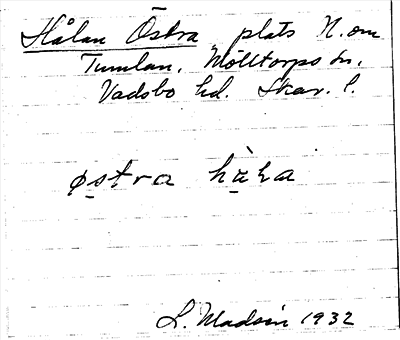 Hålan Östra plats N. om
Tumlan, Mölltorps sn,
Vadsbo hd. Skar. l.
østra hàḷa
L. Madsén 1932